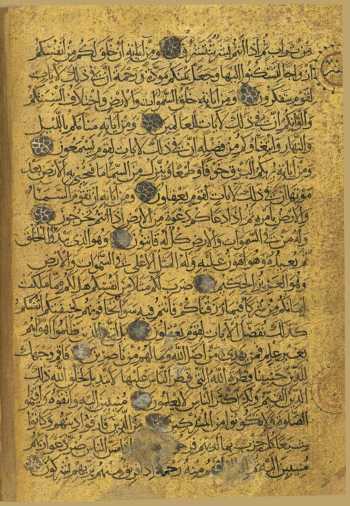 من تراب ثم اذا انتم بشر تنتشرون ومن آياته ان خلق لكم من انفسكم
ازواجا لتسكنوا اليها وجعل بينكم مودة ورحمة ان في ذلك لآيات
لقوم يتفكرون ومن آياته خلق السموات والارض واختلاف السنتكم
والوانكم ان في ذلك لآيات للعالمين ومن آياته منامكم بالليل
والنهار وابتغاؤكم من فضله ان في ذلك لآيات لقوم يسمعون
ومن آياته يريكم البرق خوفا وطمعا وينزل من السماء ماء فيحيي به الارض بعد
موتها ان في ذلك لآيات لقوم يعقلون ومن آياته ان تقوم السماء
والارض بامره ثم اذا دعاكم دعوة من الارض اذا انتم تخرجون
وله من في السموات والارض كل له قانتون وهو الذي يبدؤا الخلق
ثم يعيده وهو اهون عليه وله المثل الاعلى في السموات والارض
وهو العزيز الحكيم ضرب لكم مثلا من انفسكم هل لكم مما ملكت
ايمانكم من شركاء فيما رزقناكم فانتم فيه سواء تخافونهم كخيفتكم انفسكم
كذلك نفصل الآيات لقوم يعقلون بل اتبع الذين ظلموا اهواءهم
بغير علم فمن يهدي من اضل الله وما لهم من ناصرين فاقم وجهك
للدين حنيفا فطرة الله التي فطر الناس عليها لا تبديل لخلق الله ذلك
الدين القيم ولكن اكثر الناس لا يعلمون منيبين اليه واتقوه واقيموا
الصلوة ولا تكونوا من المشركين من الذين فرقوا دينهم وكانوا
شيعا كل حزب بما لديهم مس الناس ضر دعوا ربهم
منيبين اليه ثم اذا اذاقهم منه رحمة اذا فريق منهم بربهم يشركون